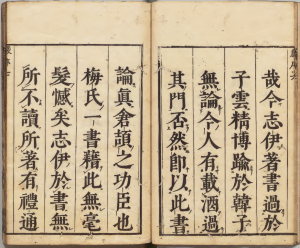 哉今志伊著書過於
子雲精博踰於韓子
無論今人有載酒過
其門否然即以此書
論真倉頡之功臣也
梅氏一書藉此無毫
髮憾矣志伊於書無
所不讀所著有禮通